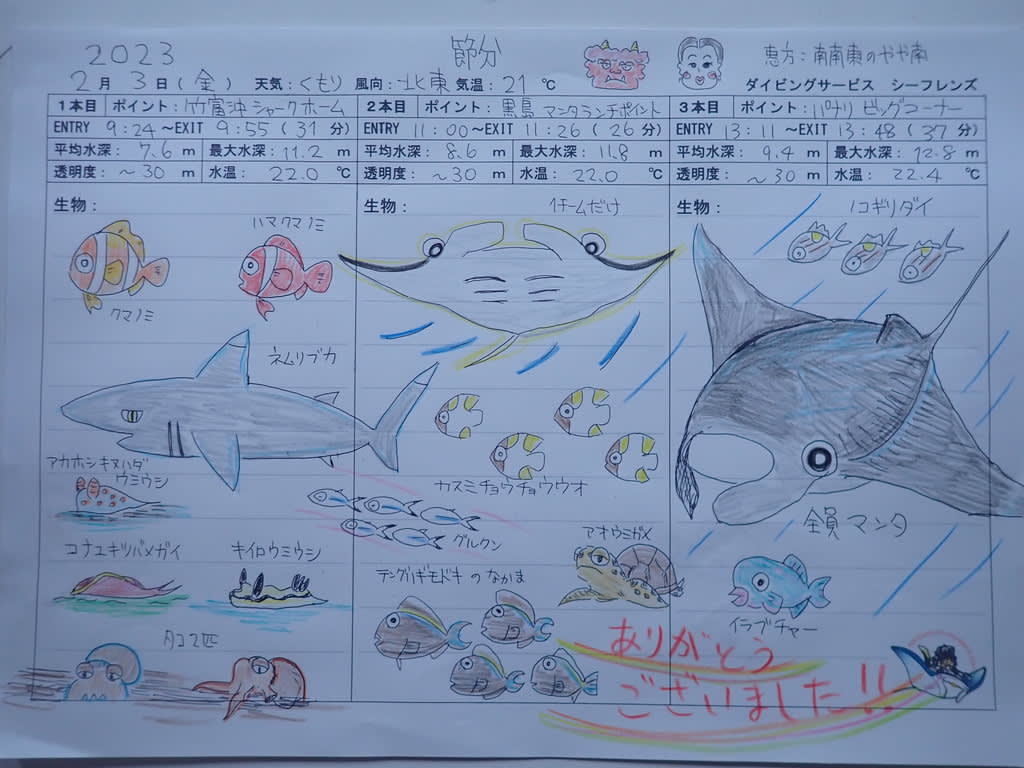 2023 節分 恵方：南南東のやや南
2月 3日(金) 天気：くもり 風向：北東 気温：21 ℃ ダイビングサービス シーフレンズ
1本目 ポイント：竹富沖 シャークホーム
ENTRY 9:24～EXIT 9:55 (31 分)
平均水深： 7.6 m 最大水深：11.2 m
透明度： ～30 m 水温： 22.0 ℃
生物：
ハマクマノミ
クマノミ
ネムリブカ
アカホシキヌハダ
ウミウシ
コナユキツバメガイ
キイロウミウシ
タコ2匹
2本目 ポイント： 黒島 マンタランチポイント
ENTRY 11:00～EXIT 11:26 (26 分)
平均水深： 8.6 m 最大水深： 11.8 m
透明度： ～30 m 水温： 22.0 ℃
生物：
1チームだけ
カスミチョウチョウウオ
グルクン
アオウミガメ
テングハギモドキ のなかま
3本目 ポイント：パナリ ビッグコーナー
ENTRY 13:11 ～EXIT 13:48 (37 分)
平均水深： 9.4 m 最大水深： 12.8 m
透明度： ～30 m 水温： 22.4 ℃
生物：
ノコギリダイ
全員マンタ
イラブチャー
ありがとう
ございました!!